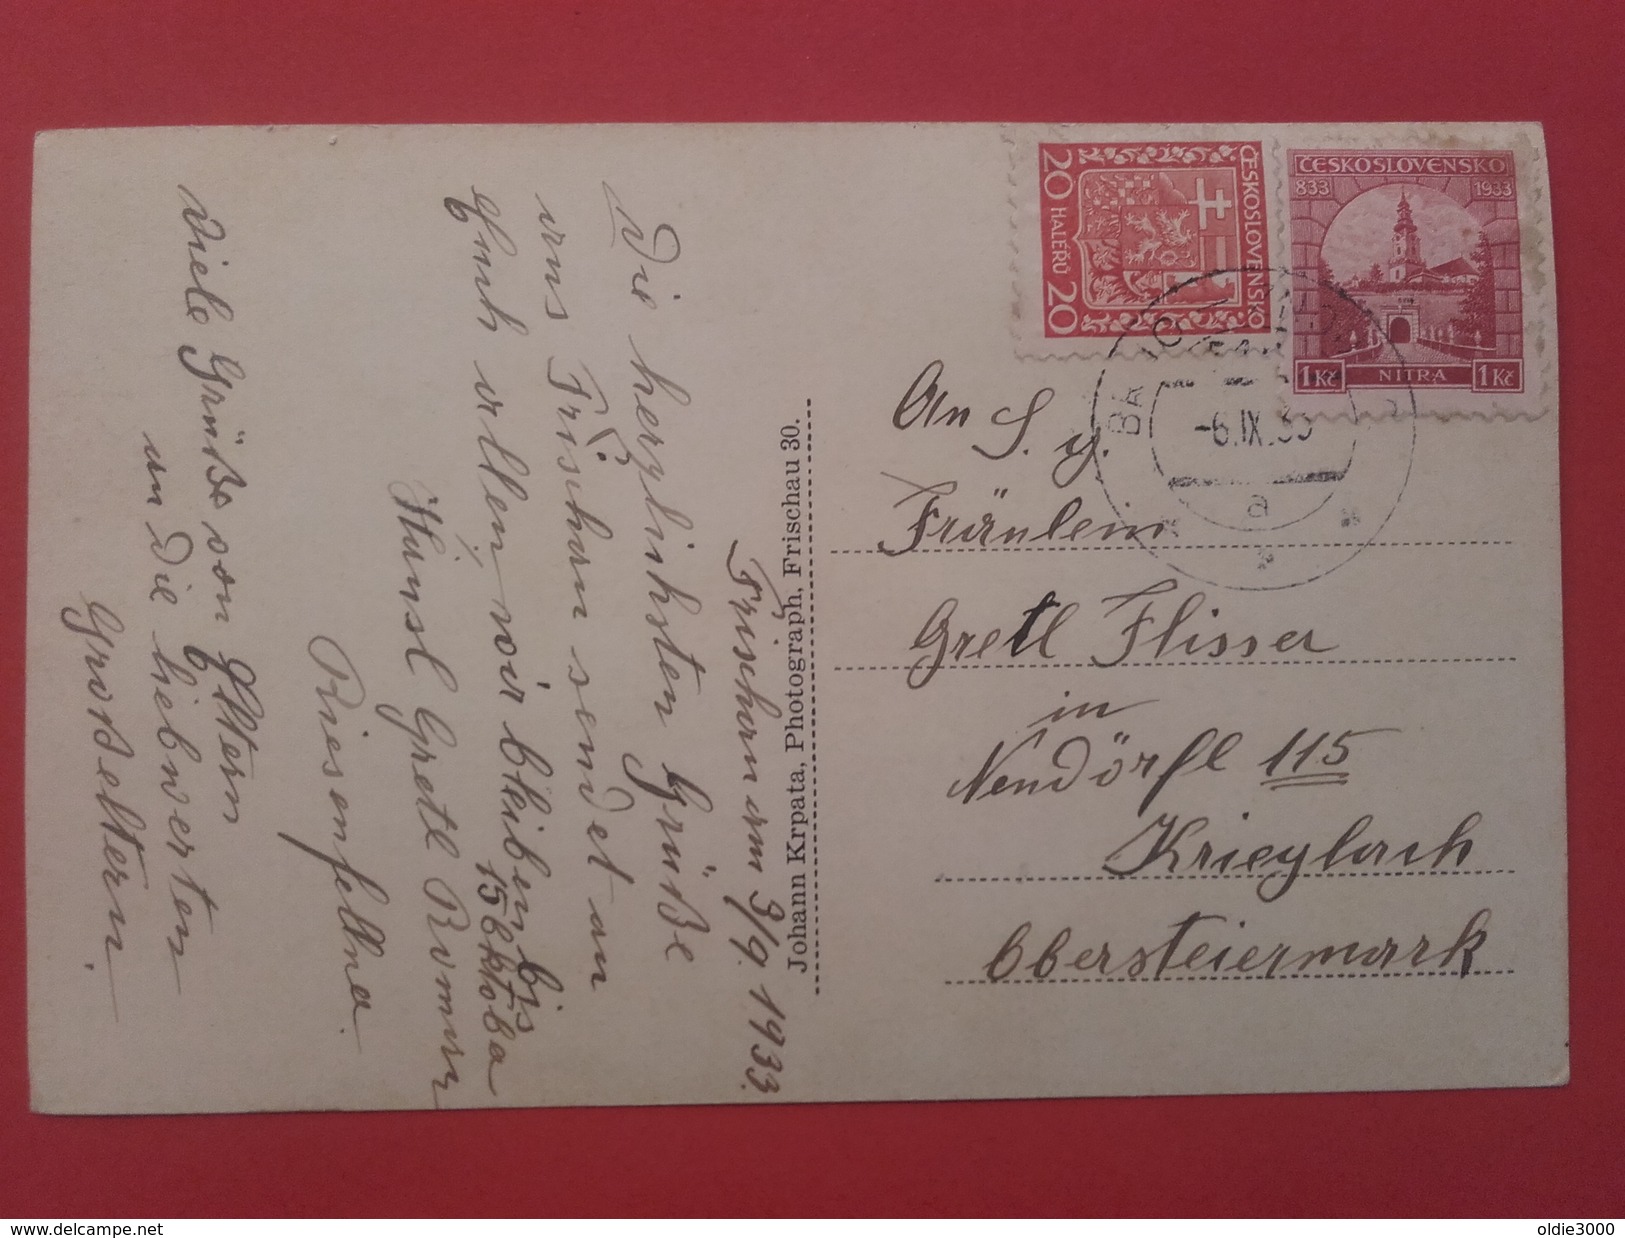 ČESKOSLOVENSKO
20 HALÉŘŮ 20
ČESKOSLOVENSKO
833 1933
1 Kč NITRA 1 Kč
-6.IX.33
a
An
S. g.
Fräulein
Gretl Flisser
in
Neudörfl 115
Krieglach
Obersteiermark
Johann Krpata, Photograph, Frischau 30.
Frischau am 3/9. 1933.
Die herzlichsten Grüße
uns Frischau sendet an
Euch allen, wir bleiben bis
15 Oktoba
Hansl Gretl Roman
Riesenfellner.
Viele Grüße von Eltern
an die liebwerten
Großeltern.
http://www.delcampe.net
oldie3000